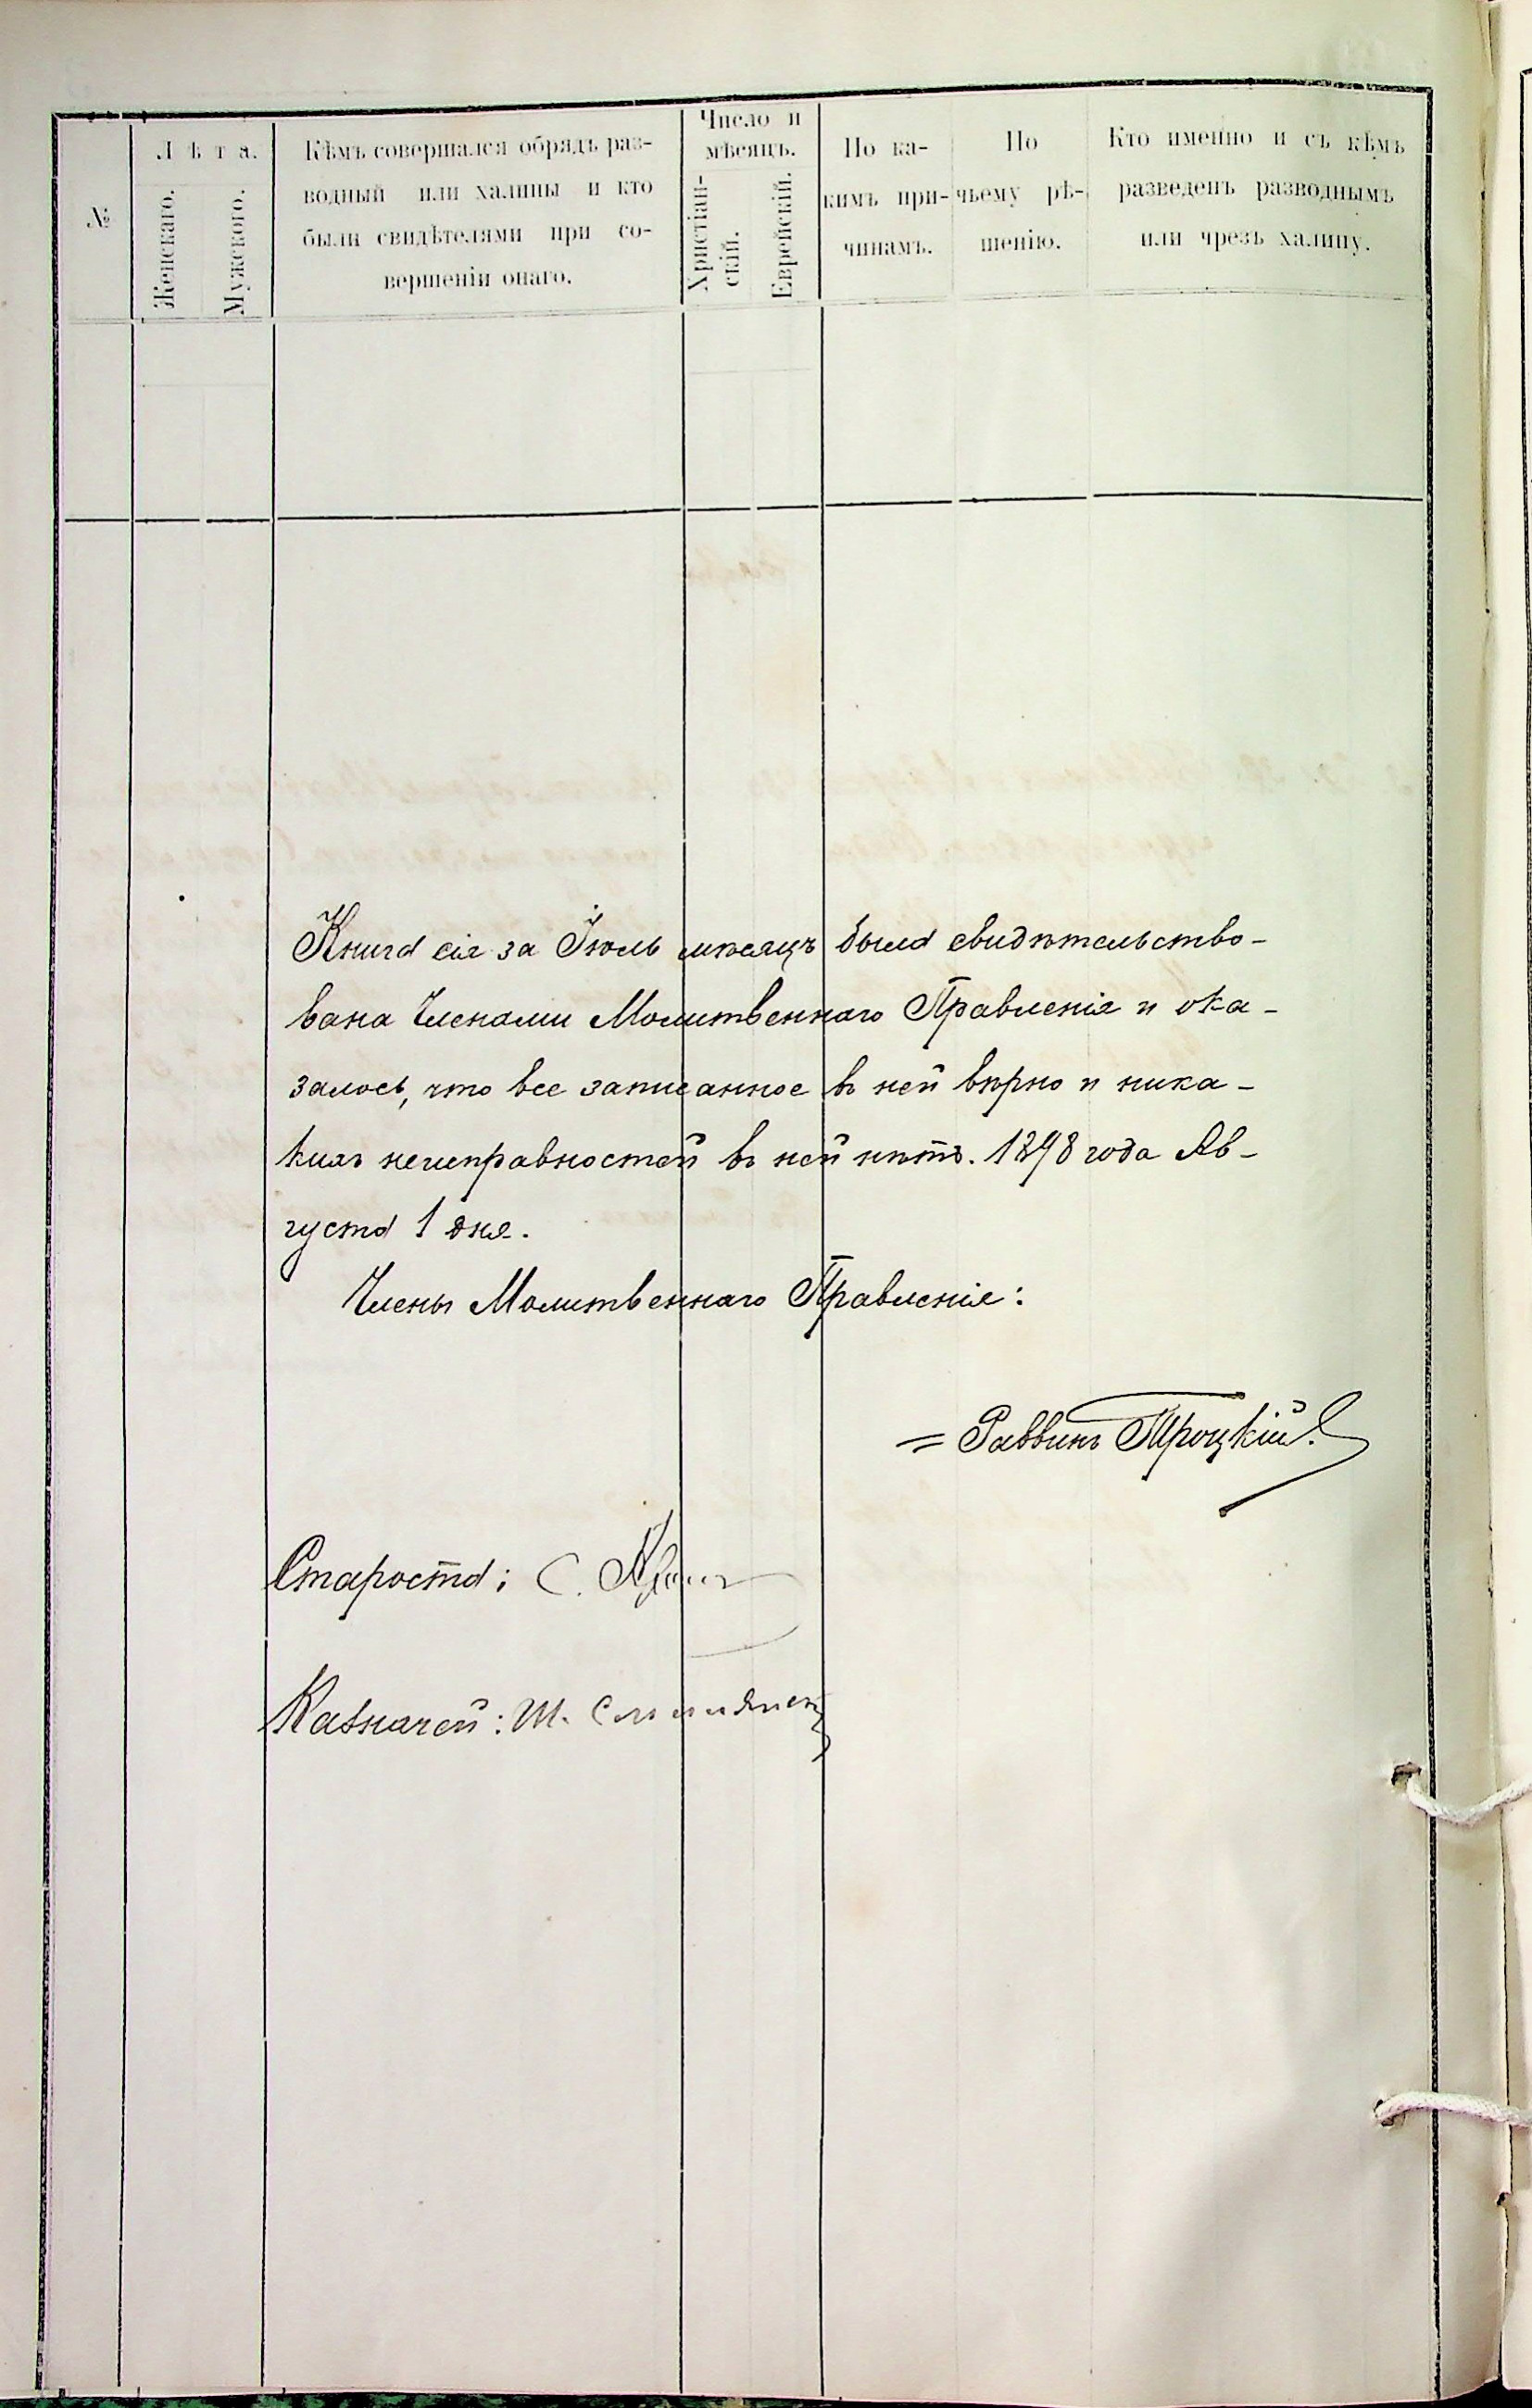 №
Лѣта.
Женскаго.
Мужского.
Кѣмъ совершался обрядъ раз-
водный или халицы и кто
были свидѣтелями при со-
вершеніи онаго.
Число и
мѣсяцъ.
Христіан-
скій.
Еврейскій.
По ка-
кимъ при-
чинамъ.
По
чьему рѣ-
шенію.
Кто именно и съ кѣмъ
разведенъ разводнымъ
или чрезъ халицу.
Книга сія за Іюль мѣсяцъ была свидѣтельство-
вана Членами Молитвеннаго Правленія и ока-
залось, что все записанное въ ней вѣрно и ника-
кихъ неисправностей въ ней нѣтъ. 1898 года Ав-
густа 1 дня.
Члены Молитвеннаго Правленія:
= Раввинъ Троцкій.
Староста: С.
Казначей: Ш.